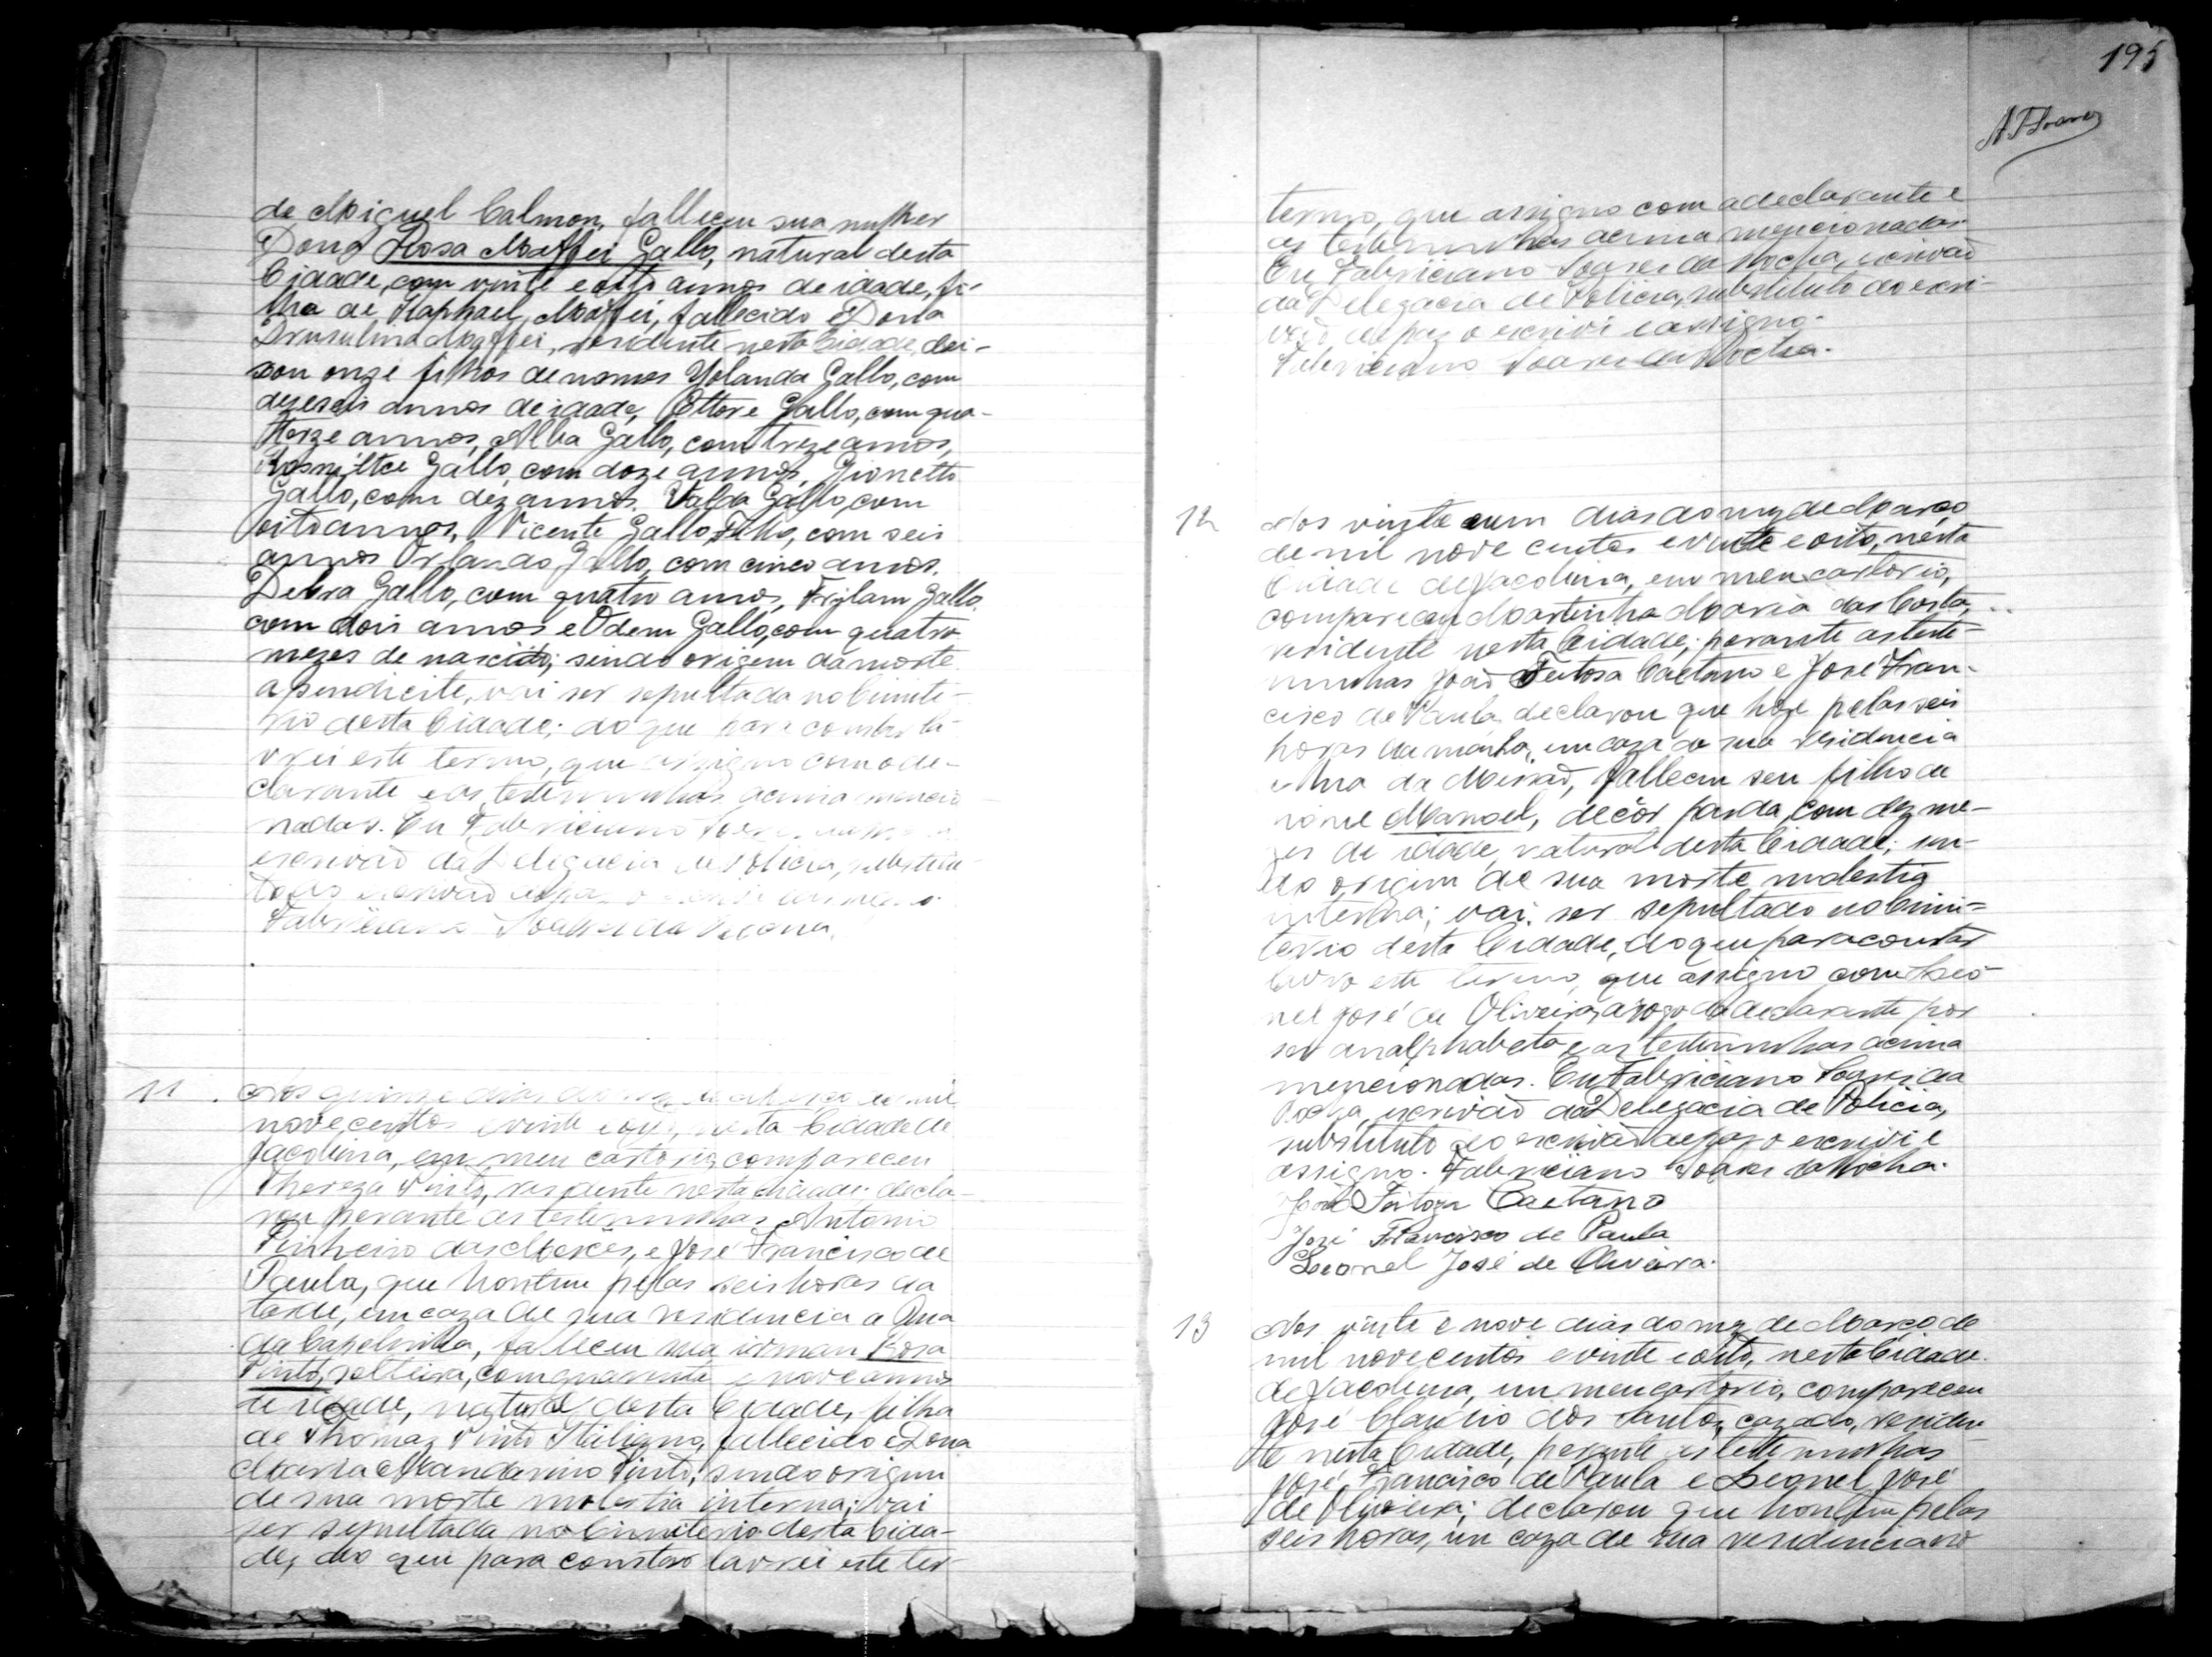 de Miguel Calmon, falleceu sua mulher
Dona Rosa Maffei Gallo, natural desta
Cidade, com vinte e oito annos de idade, fi-
lha de Raphael Maffei, fallecido e Dona
Drusulina Maffei, residente nesta Cidade, dei-
xou onze filhos de nomes Yolanda Gallo, com
deseseis annos de idade, Ettore Gallo, com qua-
torze annos, Alba Gallo, com treze annos,
Gallo, com doze annos, Gionetto
Gallo, com dez annos. Valda Gallo, com
oito annos, Vicente Gallo Filho, com seis
annos Orlando Gallo, com cinco annos.
Debra Gallo, com quatro annos, Gallo,
com dois annos e Odem Gallo, com quatro
mezes de nascido; sendo origem da morte
apendicite, vai ser sepultada no Cimite-
rio desta Cidade; do que para constar la-
vrei este termo, que assigno com o de-
clarante e as testemunhas acima mencio-
nadas. Eu Fabriciano
escrivão da Delegacia de Policia, substitu-
to do escrivão
Fabriciano Soares da Rocha.
11 Aos quinze dias do mez de Março de mil
novecentos e vinte e oito, nesta Cidade de
Jacobina, em meu cartorio, compareceu
Thereza Pinto, residente nesta cidade; decla-
rou perante as testemunhas Antonio
Pinheiro das Mercês, e José Francisco de
Paula, que hontem pelas seis horas da
tarde, em caza de sua residencia a Rua
da Capelinha, falleceu sua irman Rosa
Pinto, solteira, com quarenta e nove annos
de idade, natural desta Cidade, filha
de Thomaz Pinto fallecido e Dona
Maria Mandarino Pinto; sendo origem
de sua morte molestia interna; vai
ser sepultada no Cimiterio desta Cida-
de, do que para constar lavrei este ter-
195
A F Soares
termo, que assigno com a declarante e
as testemunhas acima mencionadas
Eu Fabriciano Soares da Rocha, escrivão
da Delegacia de Policia, substituto do escri-
vão de paz o escrivi e assigno.
Fabriciano Soares da Rocha.
12 Aos vinte e um dias do mez de Março
de mil nove centos e vinte e oito, nesta
Cidade de Jacobina, em meu cartorio,
compareceu Martinha Maria da Costa,
residente nesta Cidade; perante as teste-
munhas João Feitosa Caetano e José Fran-
cisco de Paula declarou que hoje pelas seis
horas da manhã, em caza de sua residencia
a Rua da Missão, falleceu seu filho de
nome Manoel, de côr parda, com dez me-
zes de idade, natural desta Cidade; sen-
do origem de sua morte molestia
interna; vai ser sepultado no Cimi-
terio desta Cidade, do que para constar
lavro este termo, que assigno com Leo-
nel José de Oliveira, a rogo da declarante por
ser analphabeta e as testemunhas acima
mencionadas. Eu Fabriciano Soares da
Rocha, escrivão da Delegacia de Policia,
substituto do escrivão de paz o escrivi e
assigno. Fabriciano Soares da Rocha.
João Feitoza Caetano
José Francisco de Paula
Leonel José de Oliveira.
13 Aos vinte e nove dias do mez de Março de
mil novecentos e vinte e oito, nesta Cidade
de Jacobina, em meu cartorio, compareceu
José Claudio dos Santos, cazado, residen-
te nesta Cidade, perante as testemunhas
José Francisco de Paula e Leonel José
de Oliveira; declarou que hontem pelas
seis horas, em caza de sua residencia no